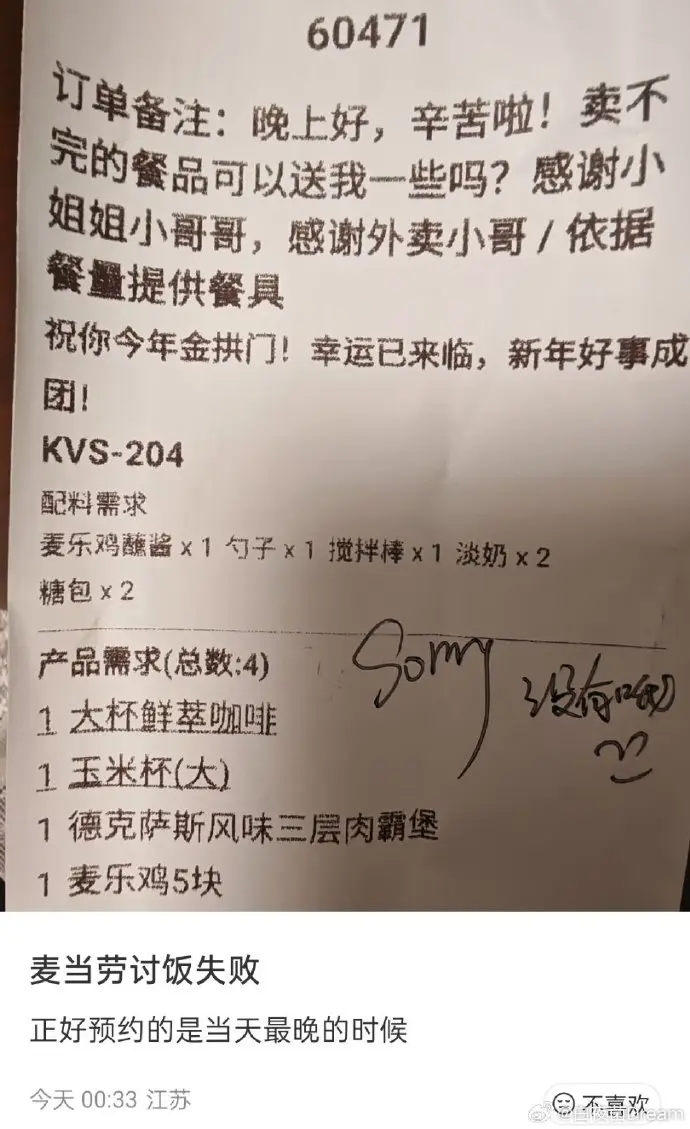 60471
订单备注：晚上好，辛苦啦！卖不
完的餐品可以送我一些吗？感谢小
姐姐小哥哥，感谢外卖小哥 / 依据
餐量提供餐具
祝你今年金拱门！幸运已来临，新年好事成
团！
KVS-204
配料需求
麦乐鸡蘸酱 x 1 勺子 x 1 搅拌棒 x 1 淡奶 x 2
糖包 x 2
产品需求(总数:4)
Sorry
没有哦
1 大杯鲜萃咖啡
1 玉米杯(大)
1 德克萨斯风味三层肉霸堡
1 麦乐鸡5块
麦当劳讨饭失败
正好预约的是当天最晚的时候
今天 00:33 江苏
不喜欢